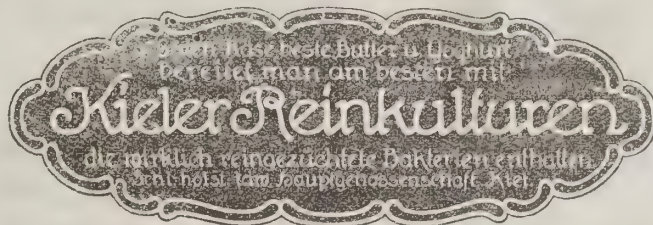 Käse beste Butter u. Yoghurt
bereitet man am besten mit
Kieler Reinkulturen
die wirklich reingezüchtete Bakterien enthalten
Schl.-Holst. Ldw. Hauptgenossenschaft Kiel